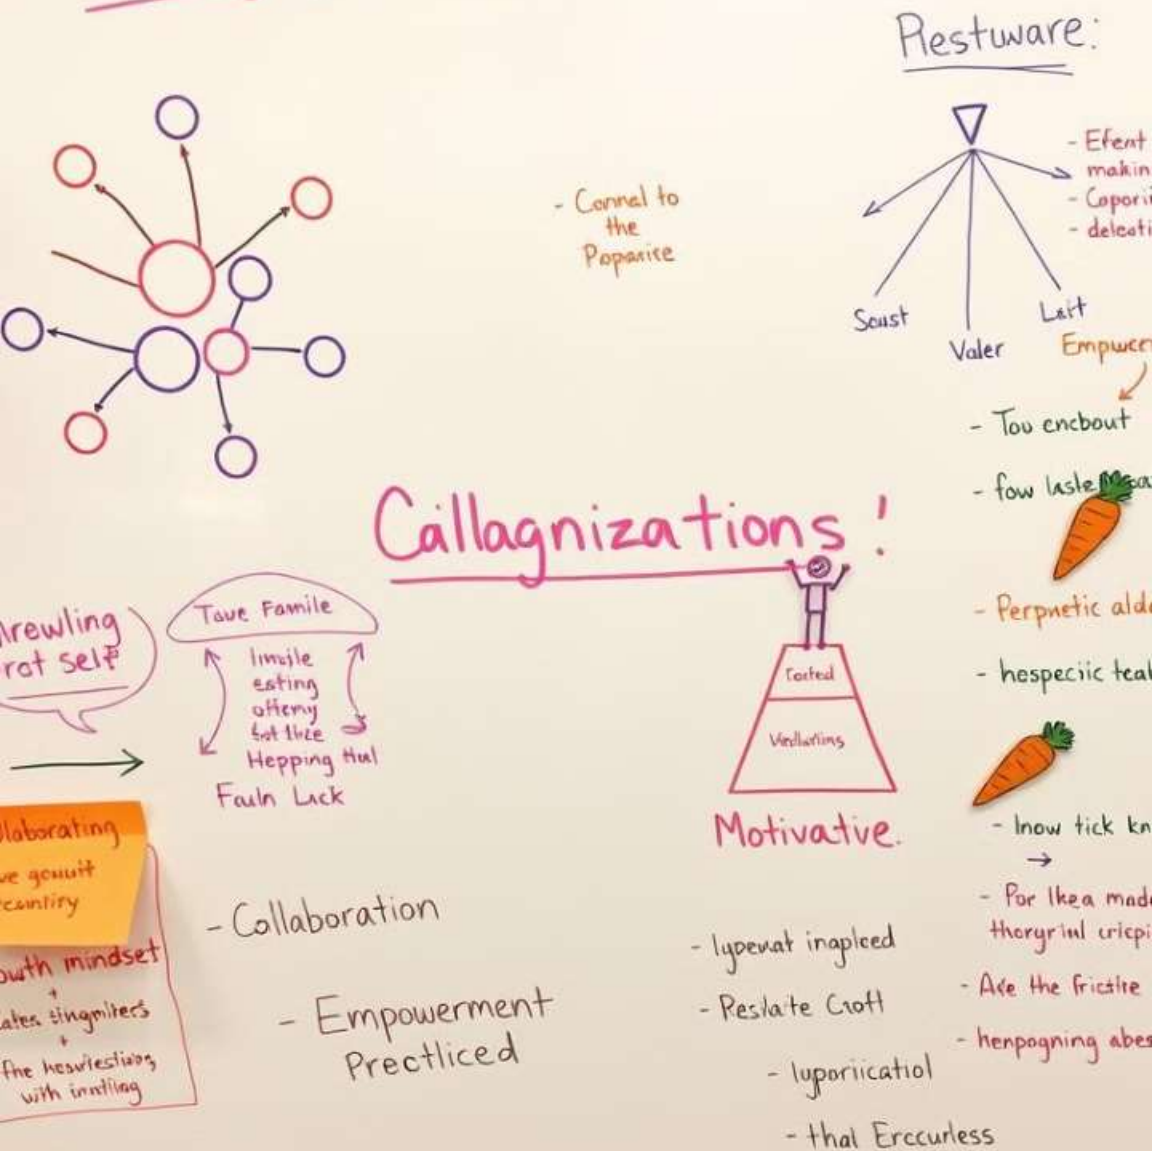 Restuware:
- Efent
makin
- Coporii
- deleati
- Connal to
the
Poparice
Scust
Valer
Lait
Empwcer
- Tou encbout
- fow laste
Callagnizations!
lrewling
rot self
Tave Famile
limile
esting
offemy
Hepping Hul
Fauln Lick
Torted
Motivative.
- Perpnetic ald
- hespeciic teal
- Inow tick kn
→
- Por Ikea mad
thorgrinl cricpi
- Ade the frictire
- henpogning abes
llaborating
ve gouuit
ecuntiry
owth mindset
+
ates singmiters
+
fne heavlestiving
with inntilag
- Collaboration
- Empowerment
Prectliced
- lypenat inaplced
- Peslaite Croft
- luporiicatiol
- thal Erccurless